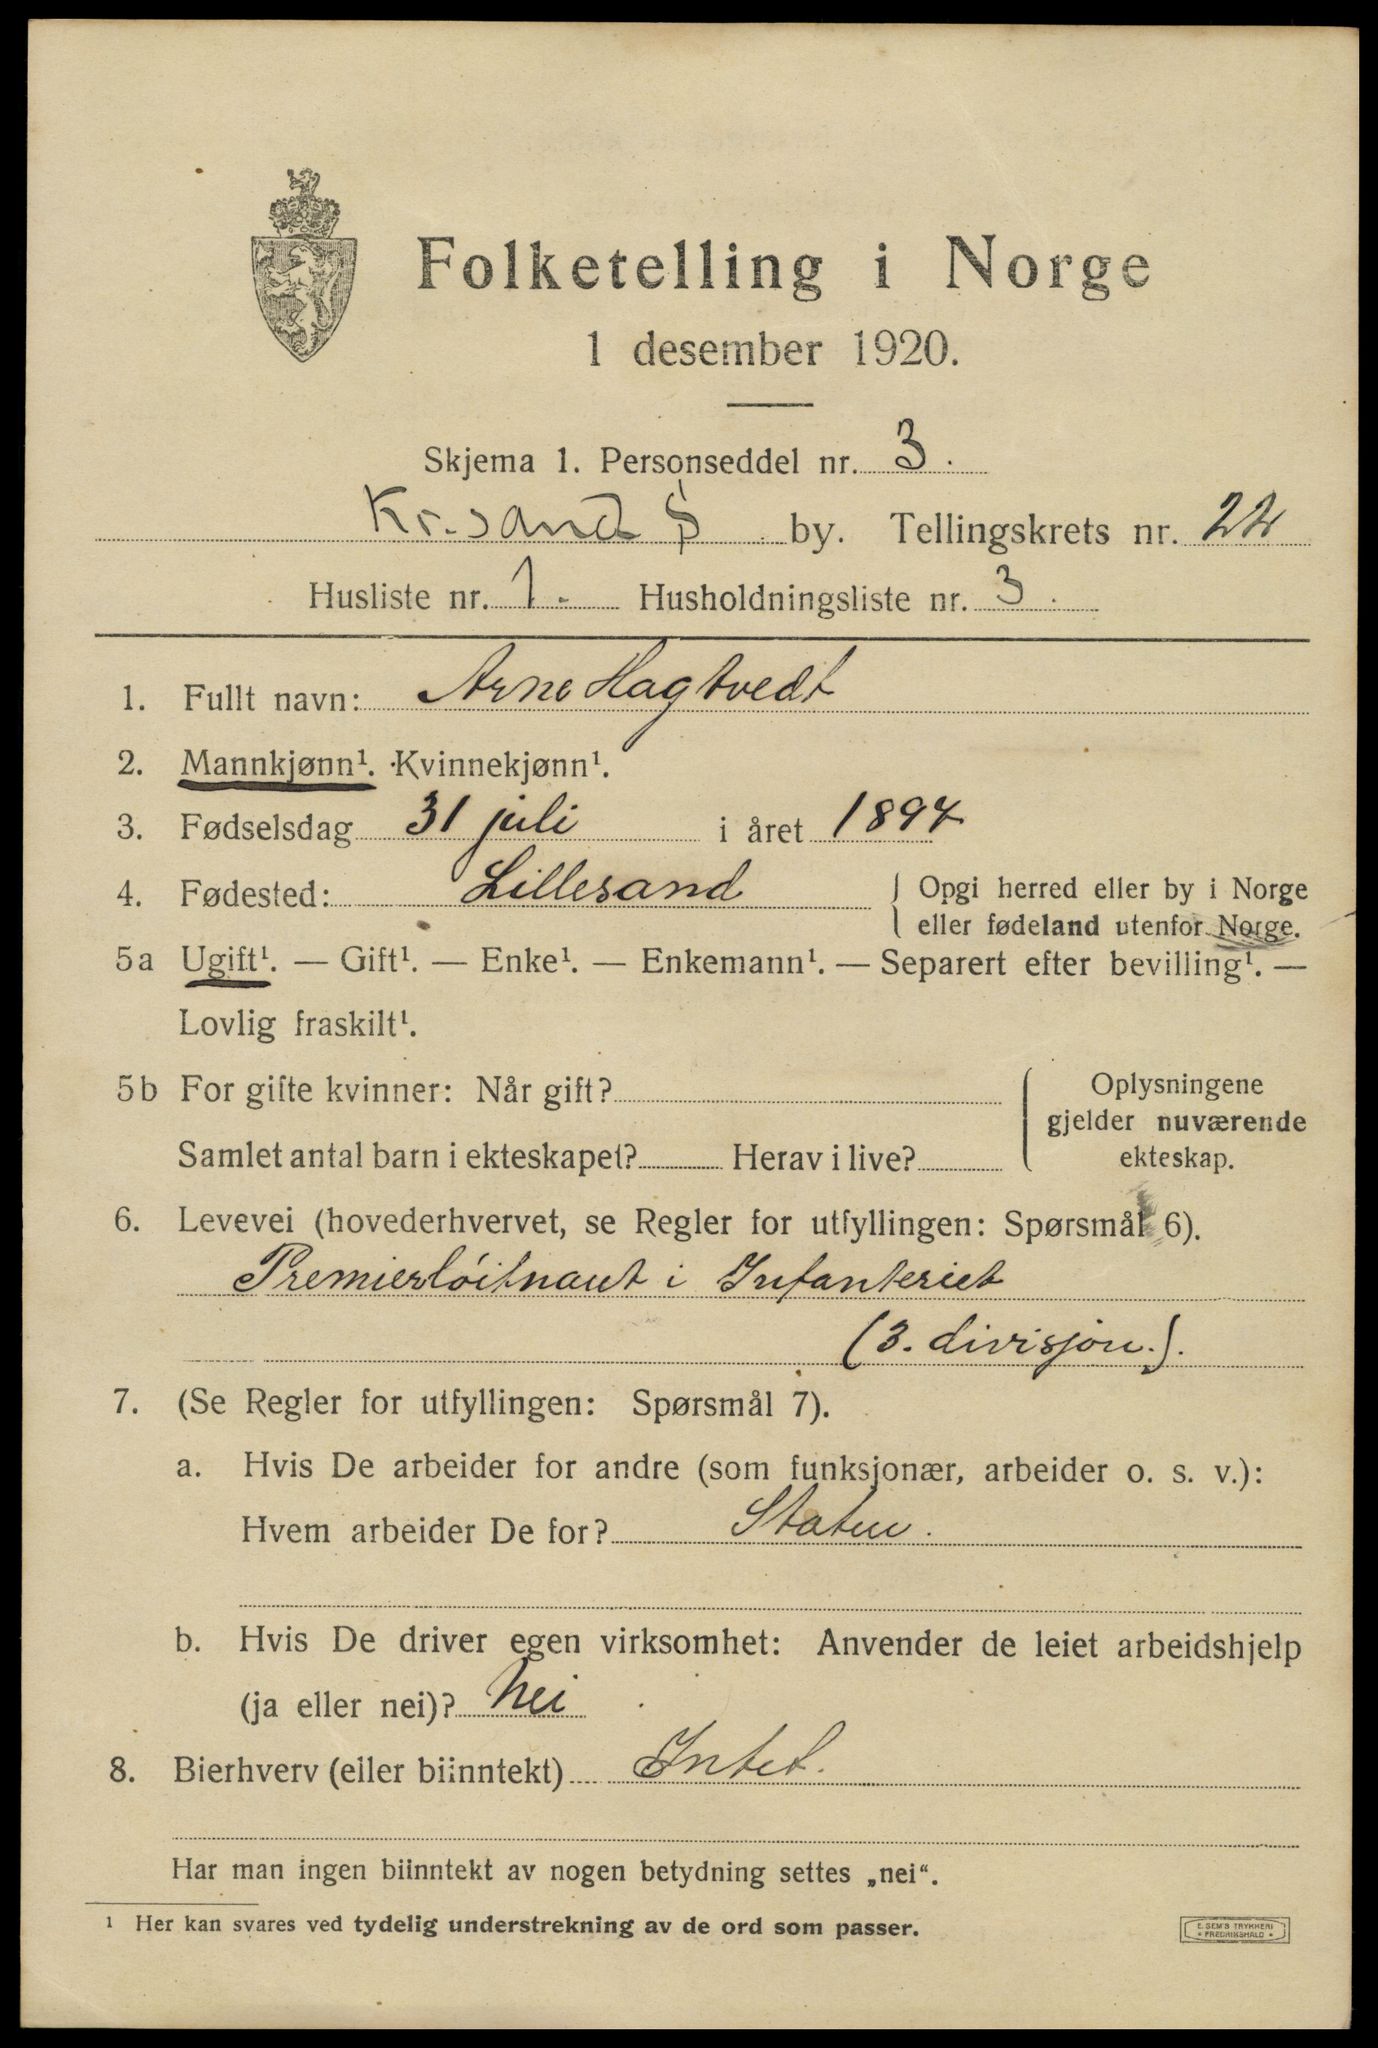 Folketelling i Norge
1 desember 1920.
Skjema 1. Personseddel nr. 3.
Kr.sand S by. Tellingskrets nr. 22
Husliste nr. 1. Husholdningsliste nr. 3.
1. Fullt navn: Arne Hagtvedt
2. Mannkjønn¹. Kvinnekjønn¹.
3. Fødselsdag 31 juli i året 1894
4. Fødested: Lillesand { Opgi herred eller by i Norge
eller fødeland utenfor Norge.
5a Ugift¹. — Gift¹. — Enke¹. — Enkemann¹. — Separert efter bevilling¹. —
Lovlig fraskilt¹.
5b For gifte kvinner: Når gift?
Samlet antal barn i ekteskapet? Herav i live?
Oplysningene
gjelder nuværende
ekteskap.
6. Levevei (hovederhvervet, se Regler for utfyllingen: Spørsmål 6).
Premierløitnant i Infanteriet
(3. divisjon.).
7. (Se Regler for utfyllingen: Spørsmål 7).
a. Hvis De arbeider for andre (som funksjonær, arbeider o. s. v.):
Hvem arbeider De for? Staten.
b. Hvis De driver egen virksomhet: Anvender de leiet arbeidshjelp
(ja eller nei)? Nei
8. Bierhverv (eller biinntekt) Intet.
Har man ingen biinntekt av nogen betydning settes „nei“.
¹ Her kan svares ved tydelig understrekning av de ord som passer.
E. SEM'S TRYKKERI
• FREDRIKSHALD •